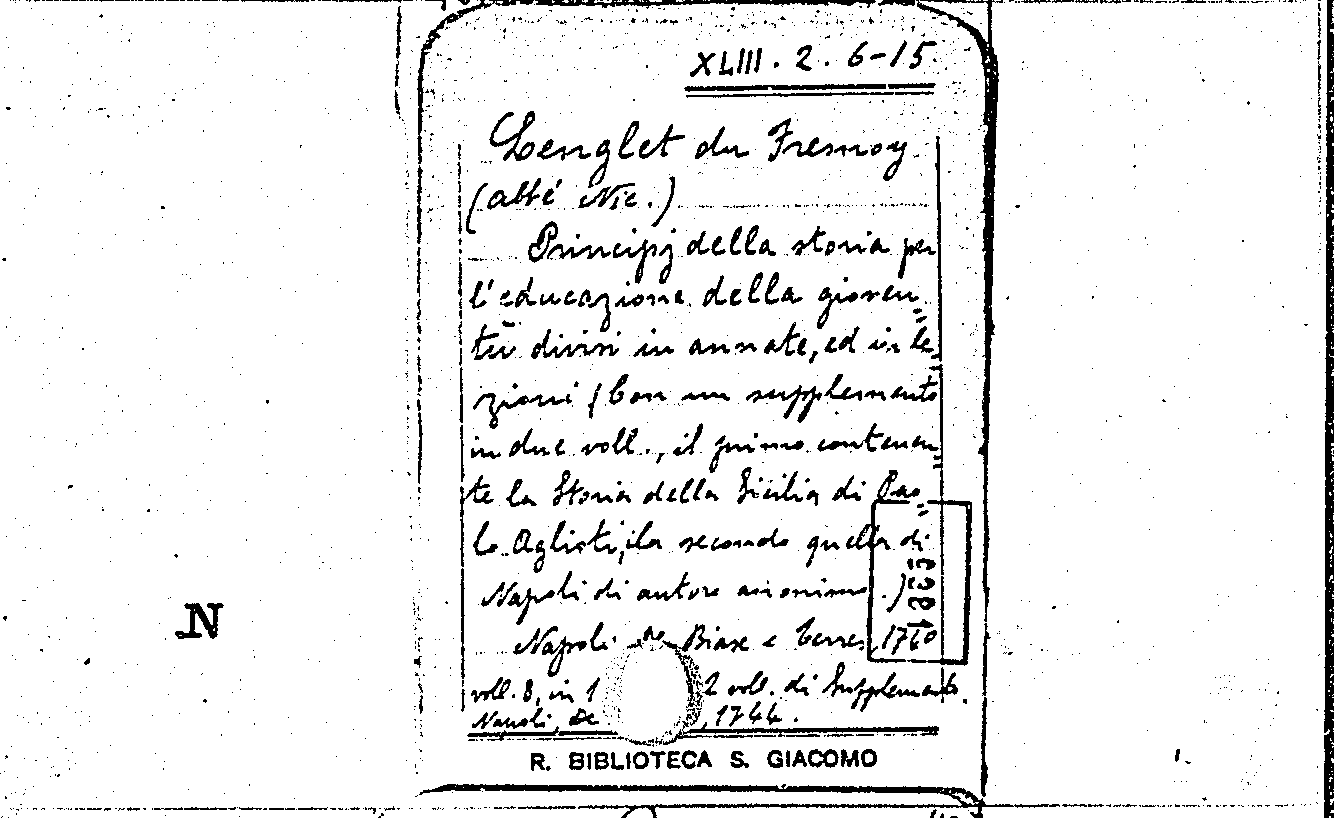 XLIII. 2. 6-15
Lenglet du Fresnoy
(abbé Nic.)
Principj della storia per
l'educazione della gioven=
tù divisi in annate, ed in le=
zioni (Con un supplemento
in due voll., il primo contenen=
te la Storia della Sicilia di Pao=
lo Aglioti, il secondo quella di
Napoli di autore anonimo.)
Napoli De Biase e Terres, 1760
voll. 8, in 1 2 voll. di Supplemento.
Napoli, De , 1744.
R. BIBLIOTECA S. GIACOMO
N